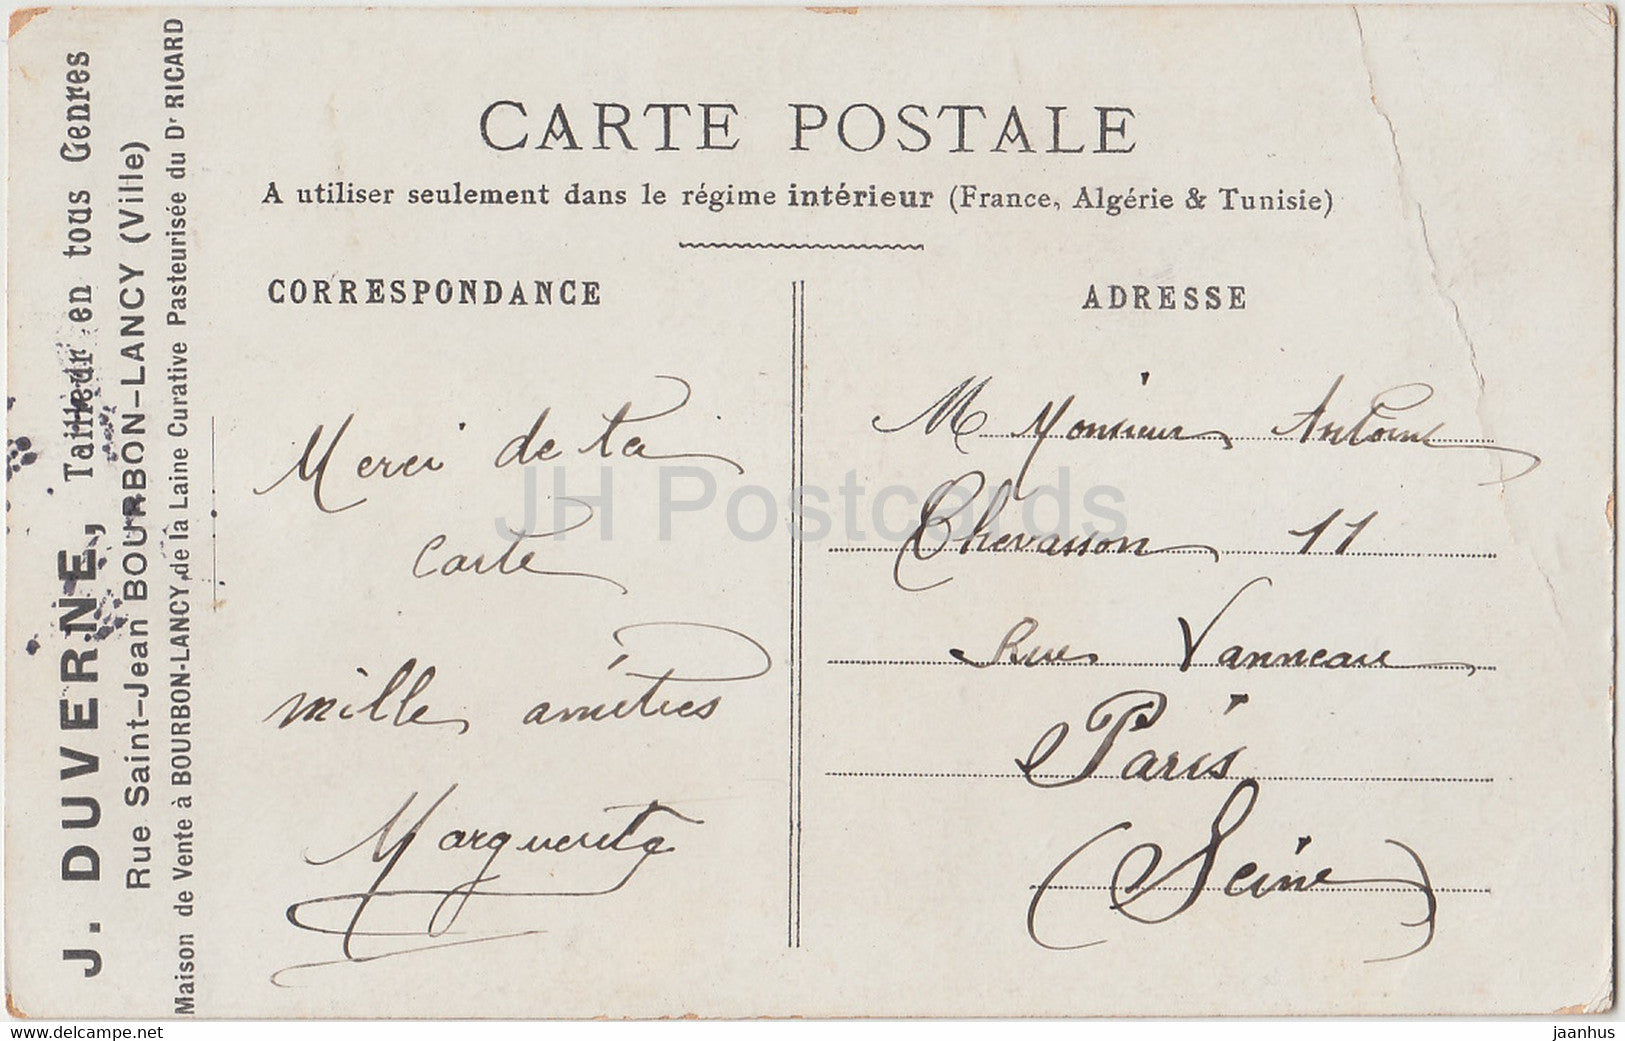 CARTE POSTALE
A utiliser seulement dans le régime intérieur (France, Algérie & Tunisie)
CORRESPONDANCE
Merci de ta
carte
mille amitiés
Marguerite
ADRESSE
M Monsieur Antoine
Chevasson 11
Rue Vanneau
Paris
(Seine)
J. DUVERNE, Tailleur en tous Genres
Rue Saint-Jean BOURBON-LANCY (Ville)
Maison de Vente à BOURBON-LANCY, de la Laine Curative Pasteurisée du Dr RICARD
JH Postcards
www.delcampe.net
jaanhus